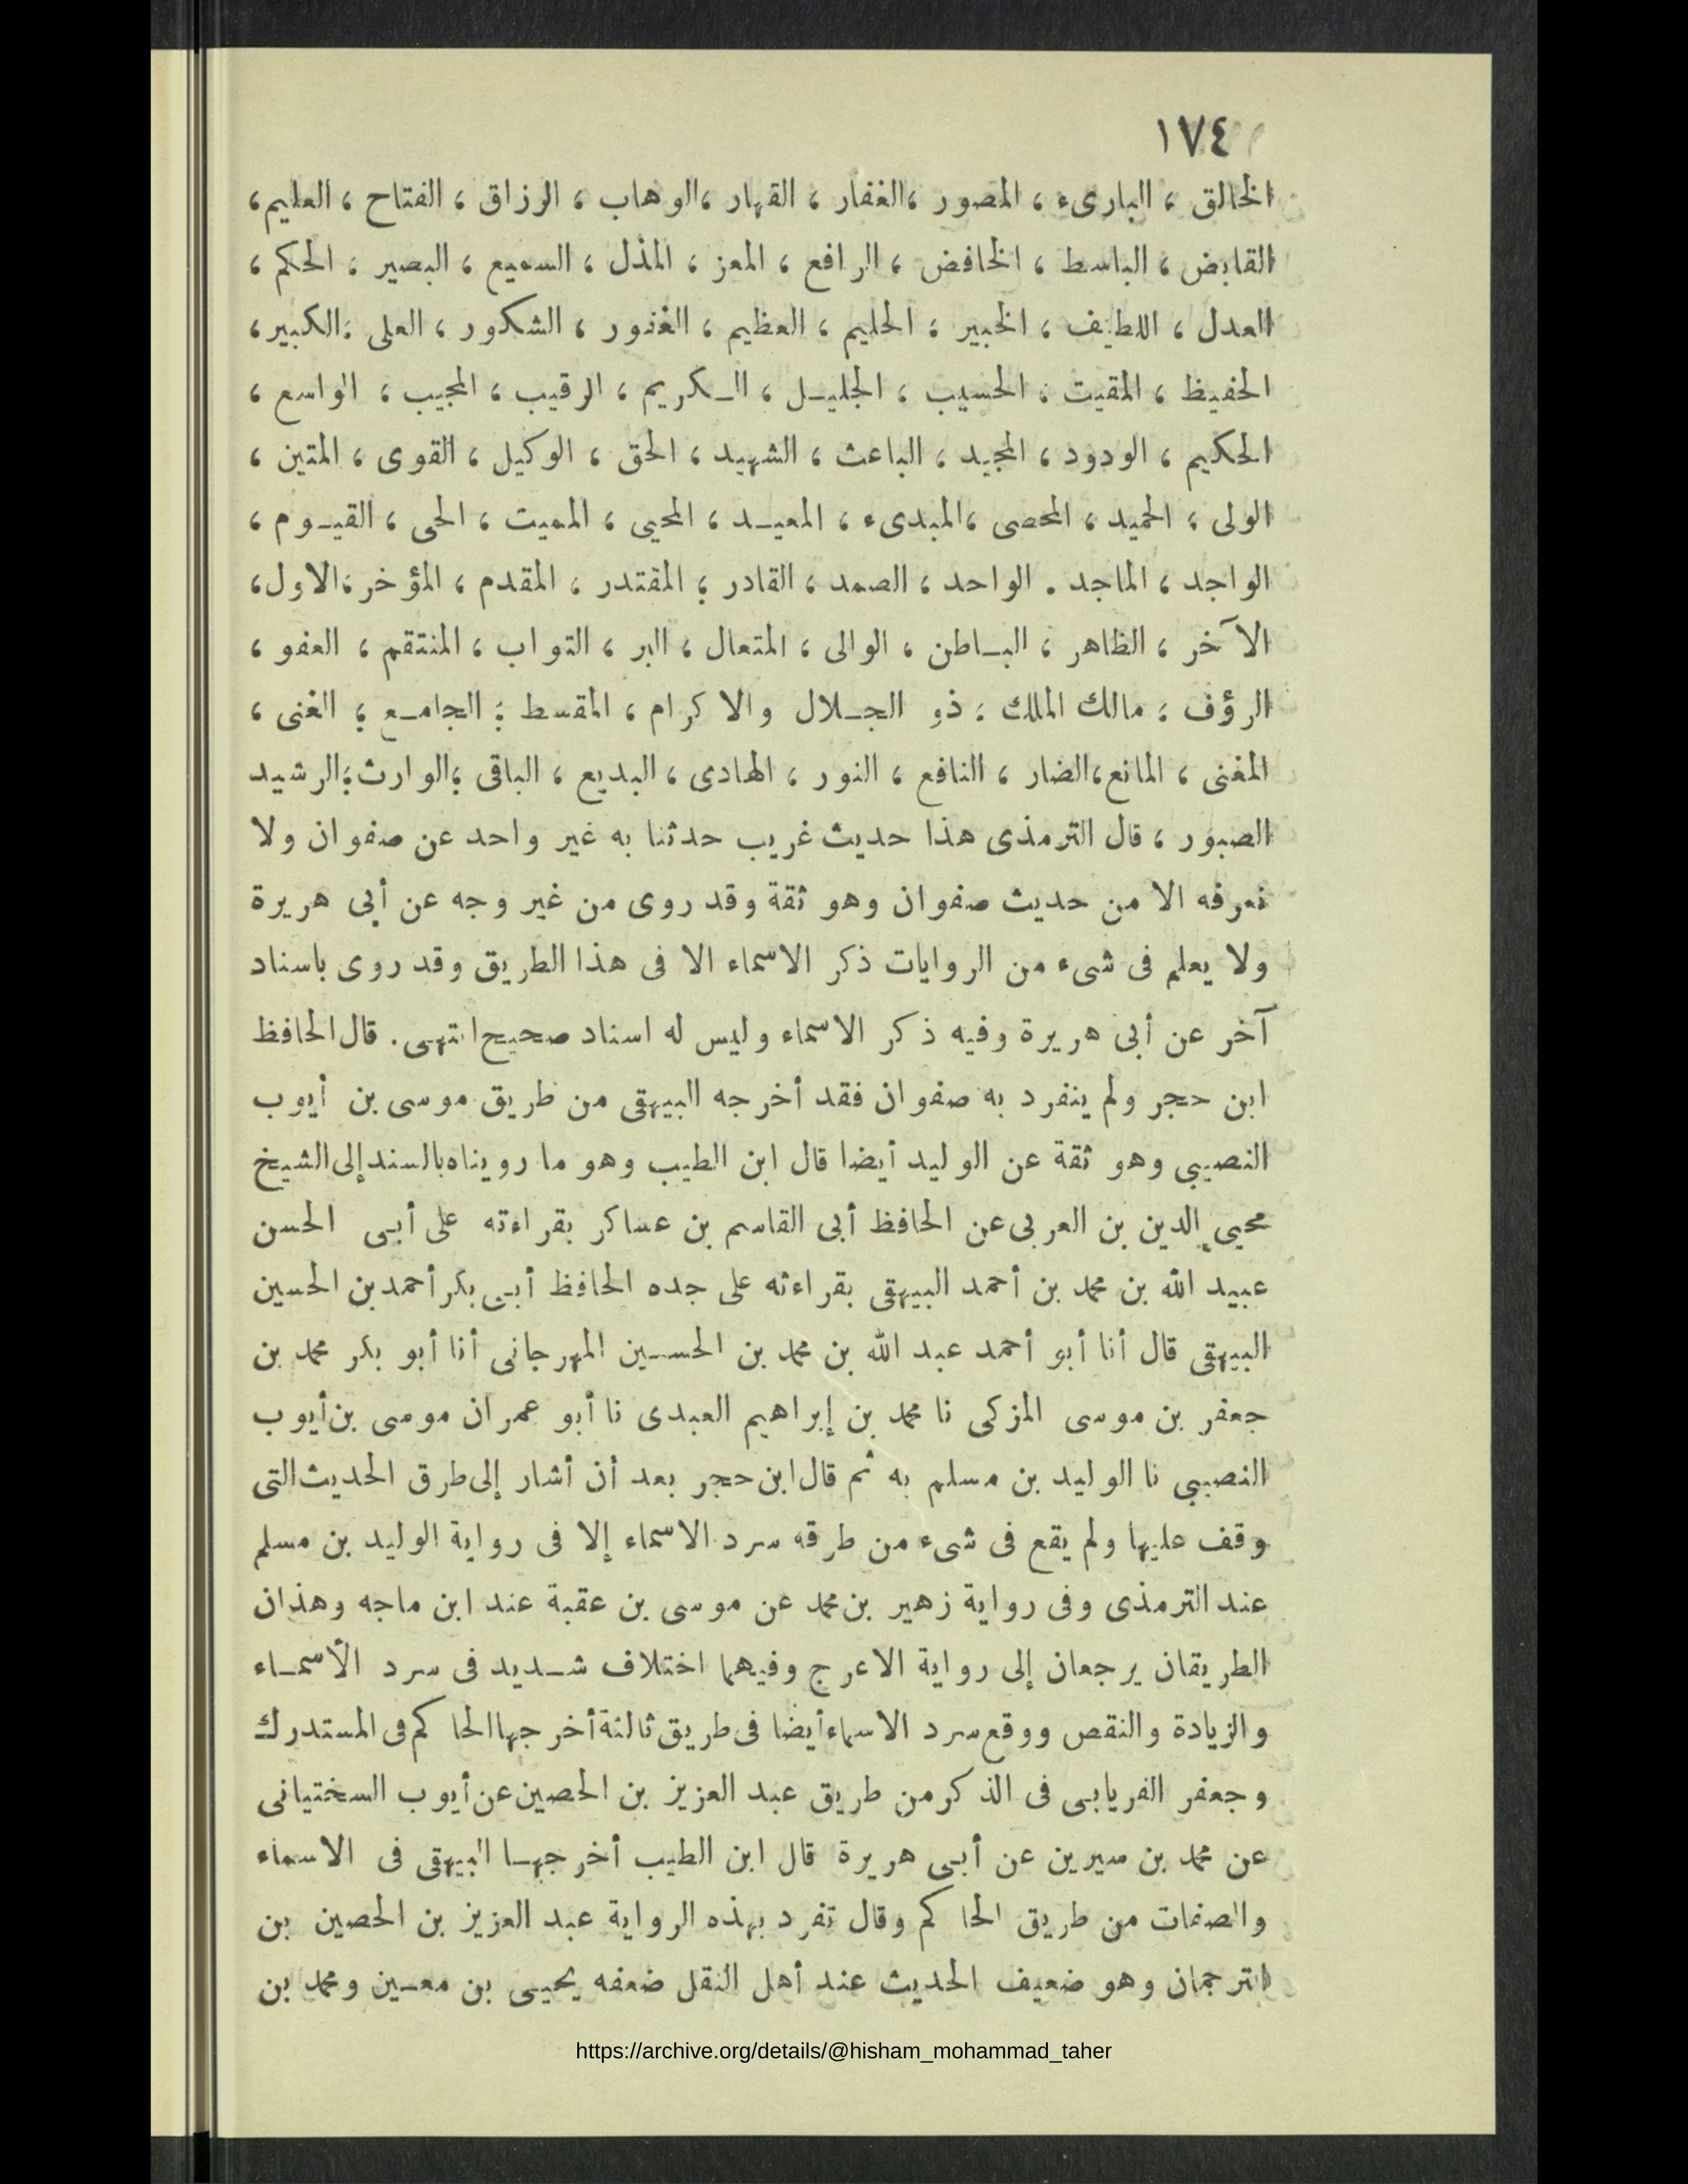 ١٧٤
الخالق ، البارىء ، المصور ،الغفار ، القهار ،الوهاب ، الرزاق ، الفتاح ، العليم،
القابض ، الباسط ، الخافض ، الرافع ، المعز ، المذل ، السميع ، البصير ، الحكم ،
العدل ، اللطيف ، الخبير ، الحليم ، العظيم ، الغفور ، الشكور ، العلى ،الكبير،
الحفيظ ، المقيت ، الحسيب ، الجليـل ، الـكريم ، الرقيب ، المجيب ، الواسع ،
الحكيم ، الودود ، المجيد ، الباعث ، الشهيد ، الحق ، الوكيل ، القوى ، المتين ،
الولى ، الحميد ، المحصى ،المبدىء ، المعيـد ، المحيى ، المميت ، الحى ، القيـوم ،
الواجد ، الماجد . الواحد ، الصمد ، القادر ، المقتدر ، المقدم ، المؤخر،الاول،
الآخر ، الظاهر ، البـاطن ، الوالى ، المتعال ، البر ، التواب ، المنتقم ، العفو ،
الرؤف ، مالك الملك ، ذو الجـلال والاكرام ، المقسط ، الجامـع ، الغنى ،
المغنى ، المانع،الضار ، النافع ، النور ، الهادى ، البديع ، الباقى ،الوارث،الرشيد
الصبور ، قال الترمذى هذا حديث غريب حدثنا به غير واحد عن صفوان ولا
نعرفه الا من حديث صفوان وهو ثقة وقد روى من غير وجه عن أبى هريرة
ولا يعلم فى شىء من الروايات ذكر الاسماء الا فى هذا الطريق وقد روى باسناد
آخر عن أبى هريرة وفيه ذكر الاسماء وليس له اسناد صحيح انتهـى. قال الحافظ
ابن حجر ولم ينفرد به صفوان فقد أخرجه البيهقى من طريق موسى بن أيوب
النصيبى وهو ثقة عن الوليد أيضا قال ابن الطيب وهو ما رويناه بالسند إلى الشيخ
محيى الدين بن العربى عن الحافظ أبى القاسم بن عساكر بقراءته على أبـى الحسن
عبيد الله بن محمد بن أحمد البيهقى بقراءته على جده الحافظ أبـى بكر أحمد بن الحسين
البيهقى قال أنا أبو أحمد عبد الله بن محمد بن الحسـين المهرجانى أنا أبو بكر محمد بن
جعفر بن موسى المزكى نا محمد بن إبراهيم العبدى نا أبو عمران موسى بن أيوب
النصيبى نا الوليد بن مسلم به ثم قال ابن حجر بعد أن أشار إلى طرق الحديث التى
وقف عليها ولم يقع فى شىء من طرقه سرد الاسماء إلا فى رواية الوليد بن مسلم
عند الترمذى وفى رواية زهير بن محمد عن موسى بن عقبة عند ابن ماجه وهذان
الطريقان يرجعان إلى رواية الاعرج وفيهما اختلاف شـديد فى سرد الأسمـاء
والزيادة والنقص ووقع سرد الاسماء أيضا فى طريق ثالثة أخرجها الحاكم فى المستدرك
وجعفر الفريابـى فى الذكر من طريق عبد العزيز بن الحصين عن أيوب السختيانى
عن محمد بن سيرين عن أبـى هريرة قال ابن الطيب أخرجهـا البيهقى فى الاسماء
والصفات من طريق الحاكم وقال تفرد بهذه الرواية عبد العزيز بن الحصين بن
الترجمان وهو ضعيف الحديث عند أهل النقل ضعفه يحيـى بن معـين ومحمد بن
https://archive.org/details/@hisham_mohammad_taher